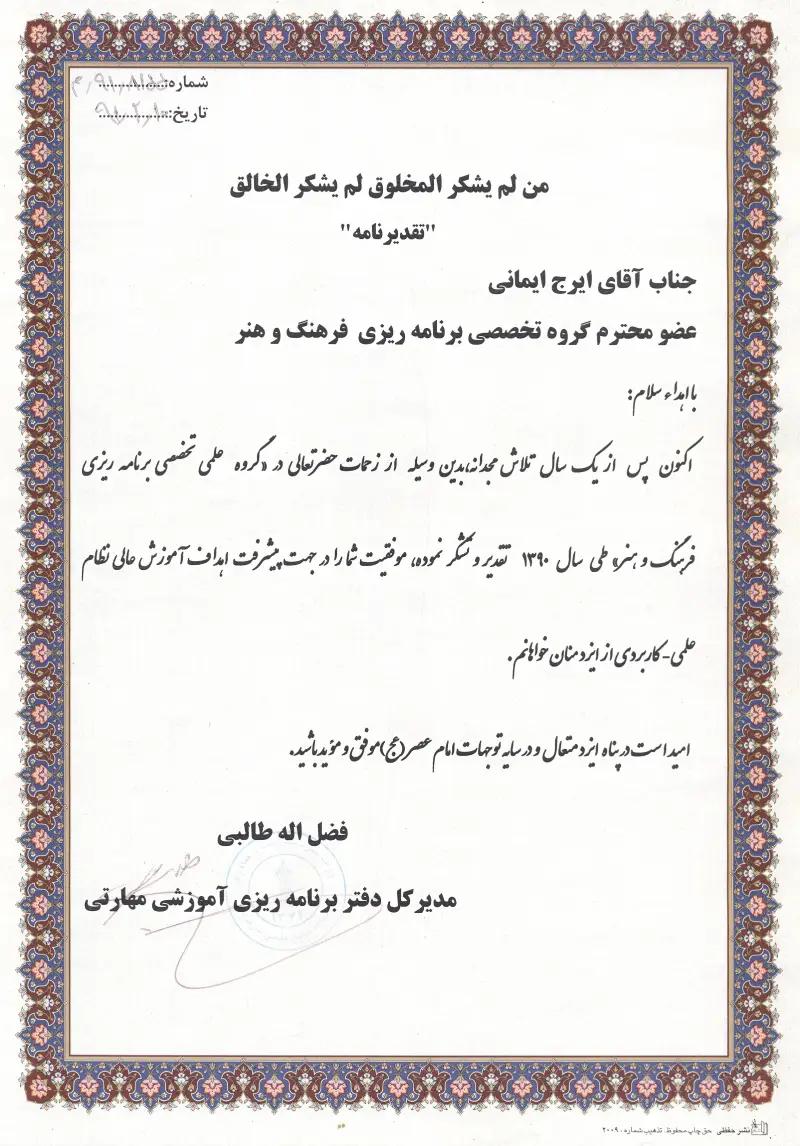 شماره:
تاریخ:
من لم یشکر المخلوق لم یشکر الخالق
"تقدیرنامه"
جناب آقای ایرج ایمانی
عضو محترم گروه تخصصی برنامه ریزی فرهنگ و هنر
با اهداء سلام:
اکنون پس از یک سال تلاش مجدانه،بدین وسیله از زحمات حضرتعالی در «گروه علمی تخصصی برنامه ریزی
فرهنگ و هنر» طی سال ۱۳۹۰ تقدیر و تشکر نموده، موفقیت شما را در جهت پیشرفت اهداف آموزش عالی نظام
علمی-کاربردی از ایزد منان خواهانم.
امید است در پناه ایزد متعال و در سایه توجهات امام عصر(عج)موفق و مؤید باشید.
فضل اله طالبی
مدیرکل دفتر برنامه ریزی آموزشی مهارتی
نشر حفظی حق چاپ محفوظ. تذهیب شماره ۲۰۰۹۰